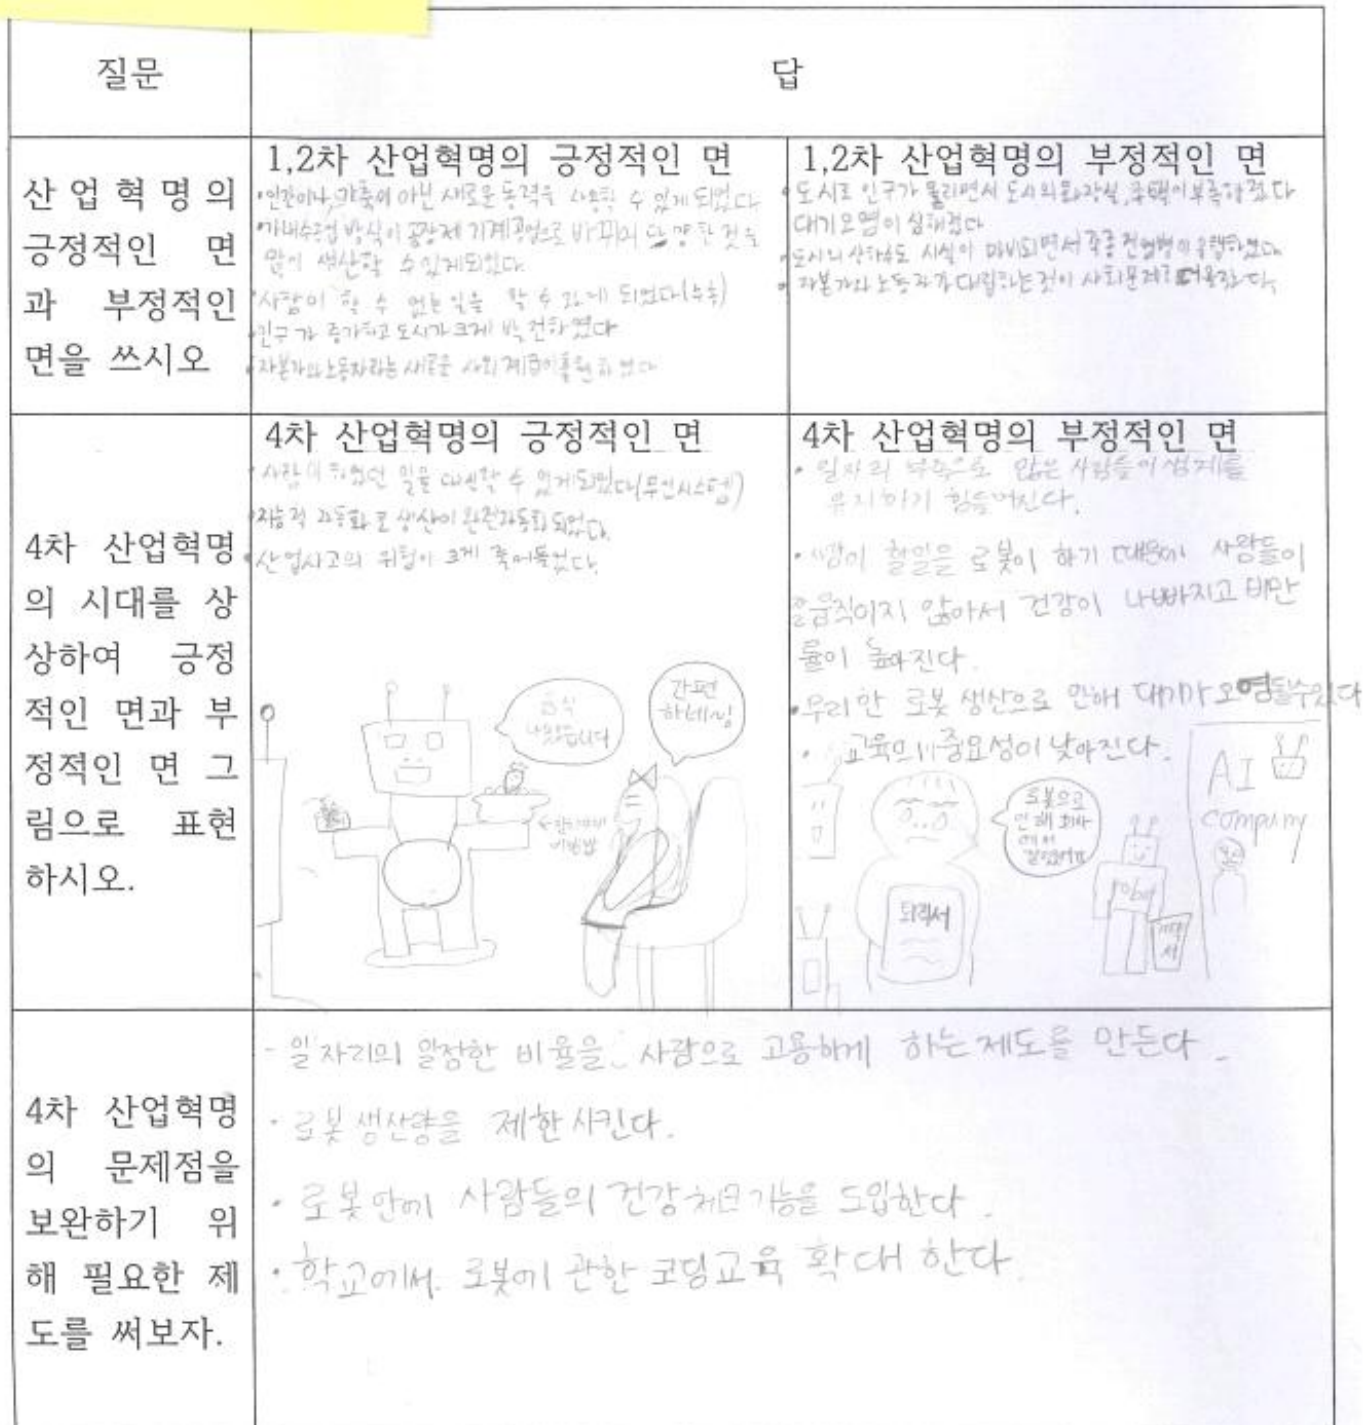 질문
답
산업혁명의
긍정적인 면
과 부정적인
면을 쓰시오
1,2차 산업혁명의 긍정적인 면
•인간이나 가축이 아닌 새로운 동력을 사용할 수 있게 되었다
•가내수공업 방식이 공장제 기계공업으로 바뀌어 다양한 것을
많이 생산할 수 있게되었다.
•사람이 할 수 없는 일을 할 수 있게 되었다
•인구가 증가하고 도시가 크게 발전하였다
•자본가와 노동자라는 새로운 사회 계급이 출현하였다
1,2차 산업혁명의 부정적인 면
• 도시로 인구가 몰리면서 도시의 화장실, 주택이 부족해졌다
대기오염이 심해졌다
•도시의 상하수도 시설이 마비되면서 각종 전염병이 유행하였다
• 자본가와 노동자가 대립하는 것이 사회문제로
4차 산업혁명
의 시대를 상
상하여 긍정
적인 면과 부
정적인 면 그
림으로 표현
하시오.
4차 산업혁명의 긍정적인 면
• 사람이 하였던 일을 대신할 수 있게되었다(무인시스템)
•지능적 자동화로 생산이 완전자동화 되었다.
•산업사고의 위험이 크게 줄어들었다.
음식
나왔습니다
간편
하네~
4차 산업혁명의 부정적인 면
• 일자리 부족으로 많은 사람들이 생계를
유지하기 힘들어진다.
• 사람이 할일을 로봇이 하기 때문에 사람들이
움직이지 않아서 건강이 나빠지고 비만
률이 높아진다.
•무리한 로봇 생산으로 인해 대기가 오염될수있다
• 교육의 중요성이 낮아진다.
로봇으로
인해 회사
에서
퇴직서
AI
company
4차 산업혁명
의 문제점을
보완하기 위
해 필요한 제
도를 써보자.
- 일자리의 일정한 비율을 사람으로 고용하게 하는 제도를 만든다.
• 로봇 생산량을 제한시킨다.
• 로봇안에 사람들의 건강체크기능을 도입한다.
• 학교에서 로봇에 관한 코딩교육 확대 한다.